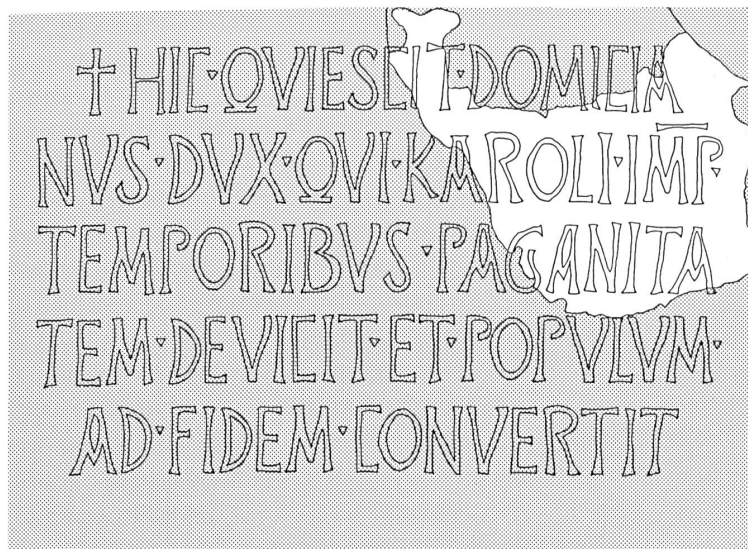 ✝ HIC·QVIESCIT·DOMICIA
NVS·DVX·QVI·KAROLI·IM̅P̅·
TEMPORIBVS·PAGANITA
TEM·DEVICIT·ET·POPVLVM·
AD·FIDEM·CONVERTIT